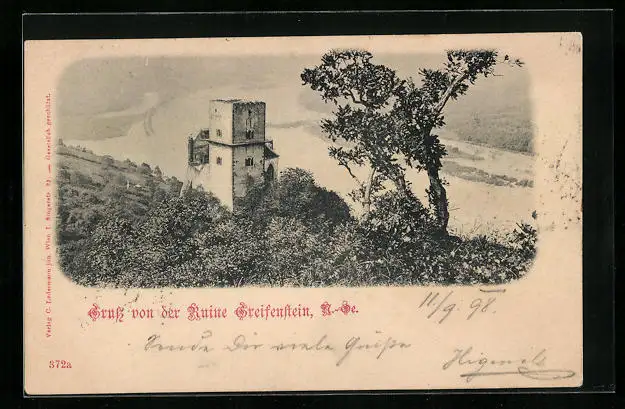 Verlag C. Ledermann jun. Wien I. Singerstr. 22. — Gesetzlich geschützt.
Gruß von der Ruine Greifenstein, N.-Oe.
11/9 98.
Sende Dir viele Grüße
372a